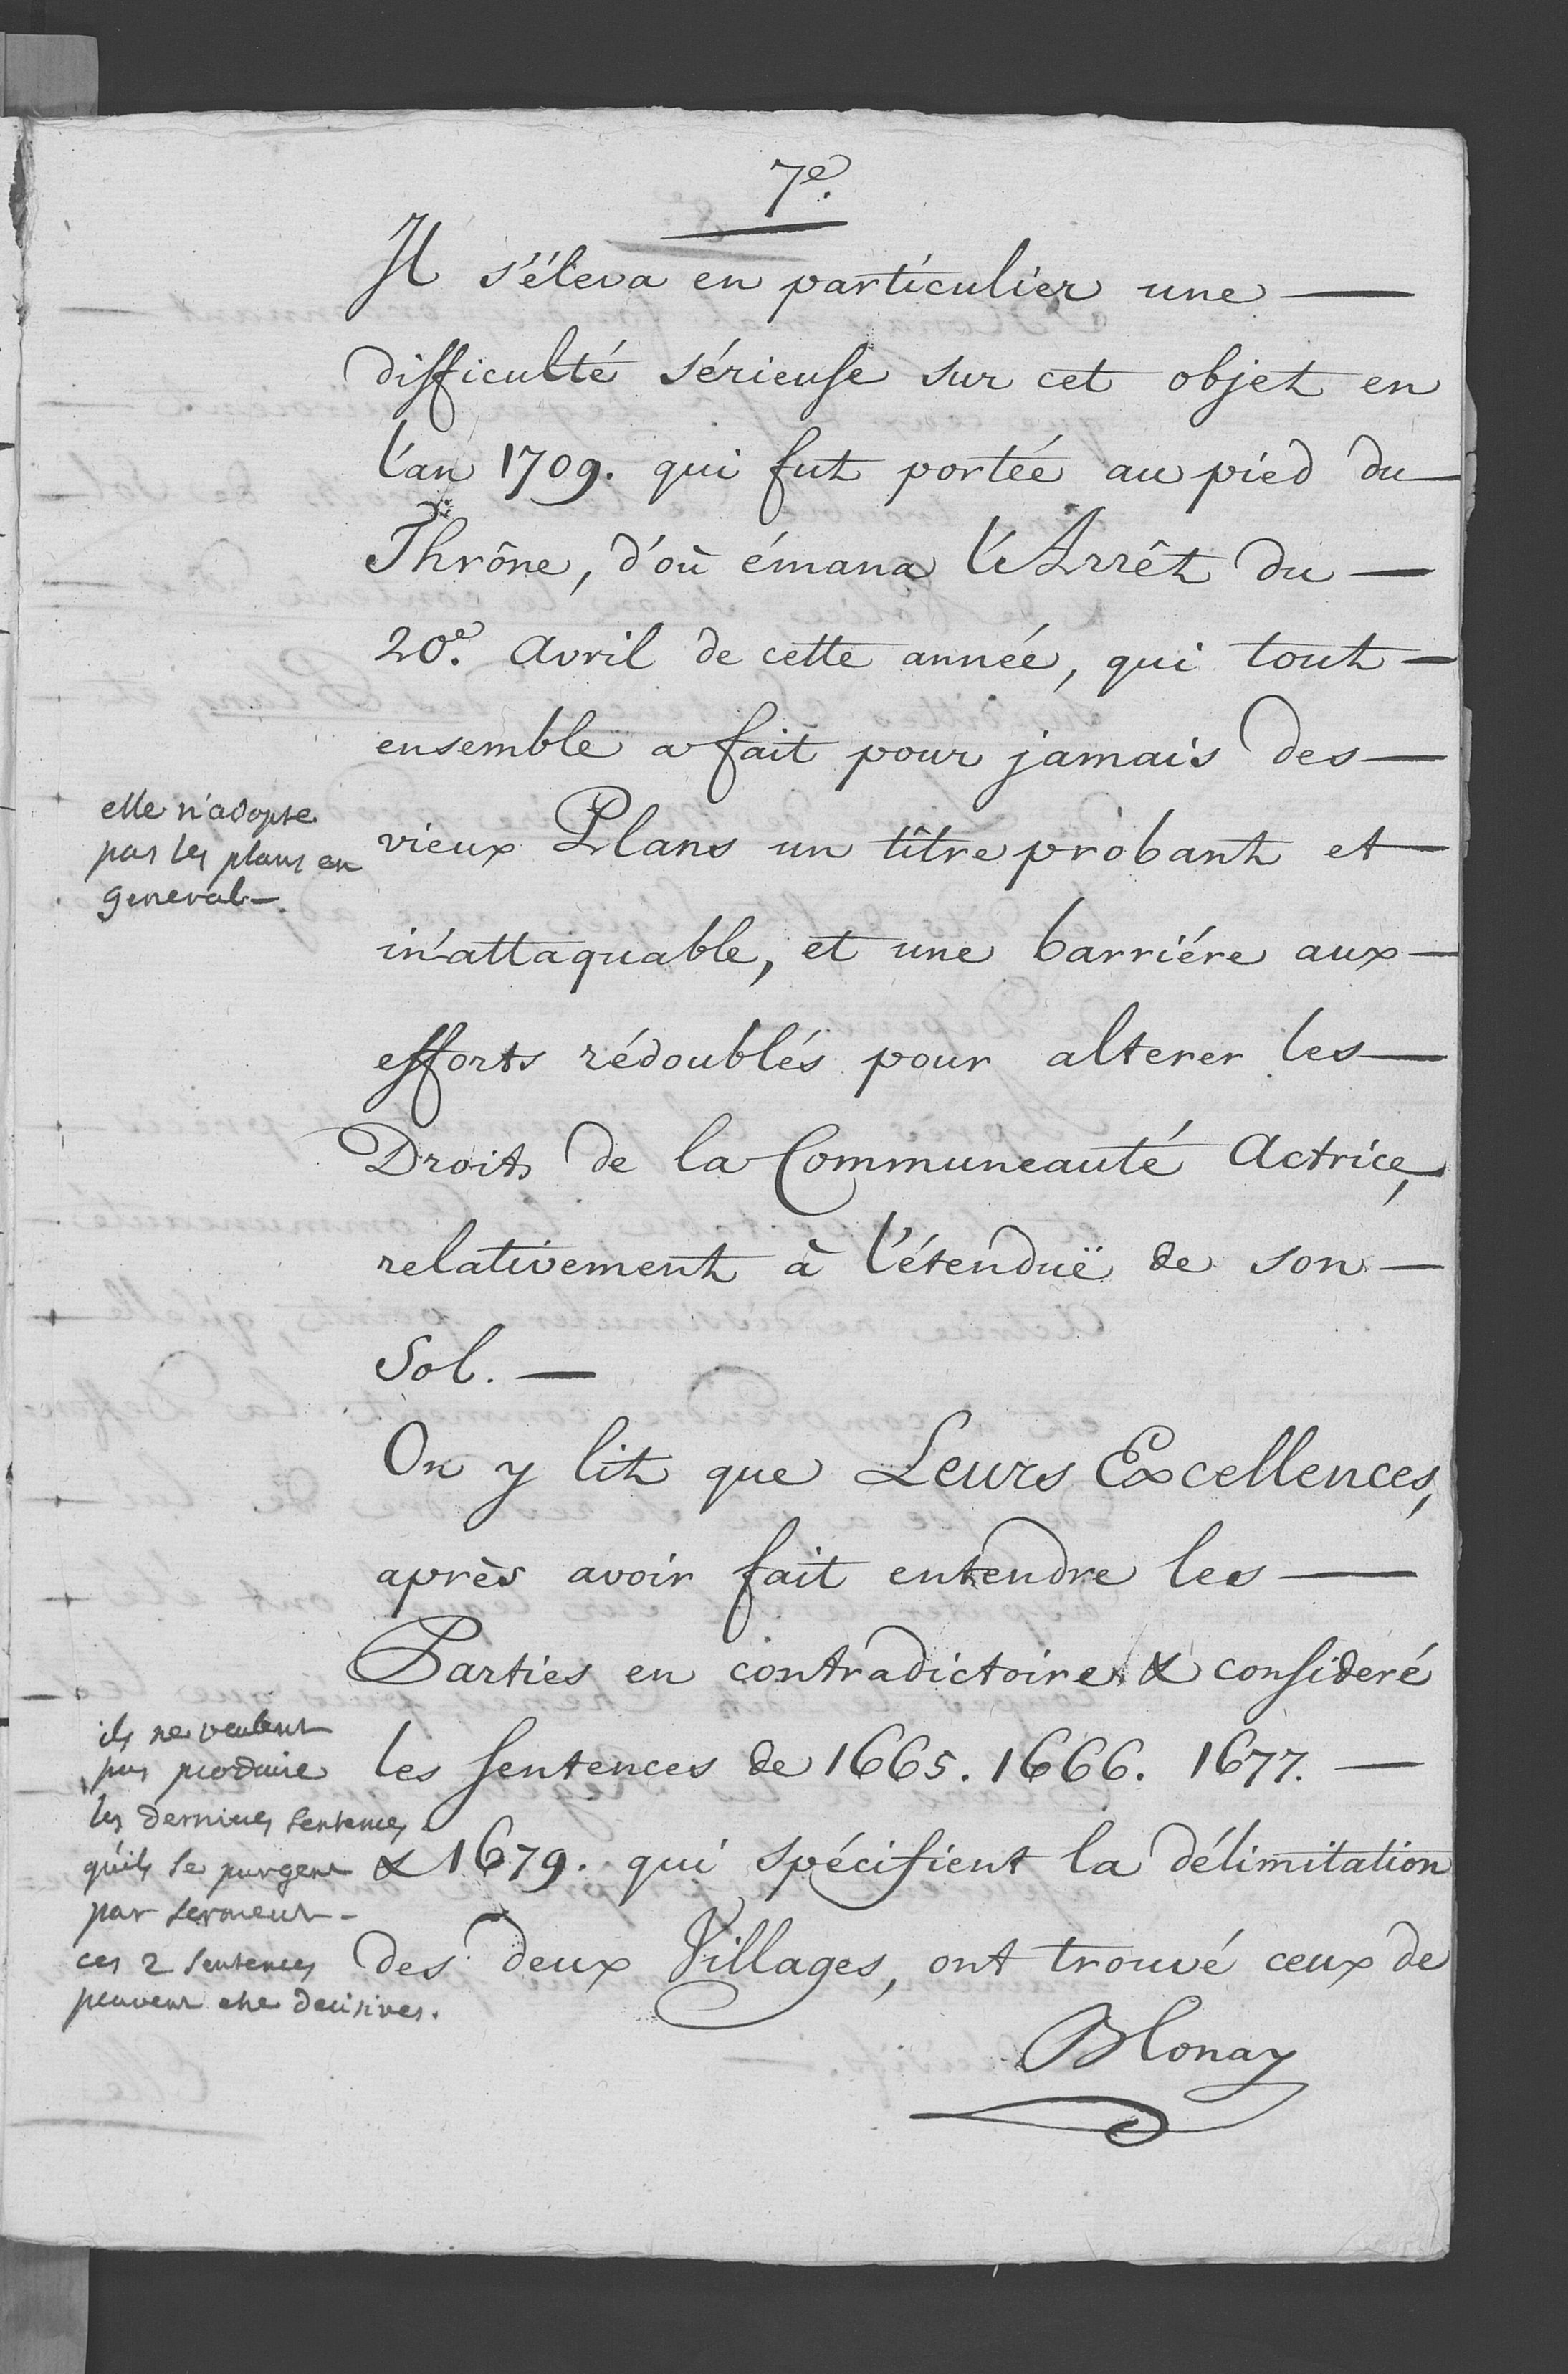 7e.
Il s'éleva en particulier une —
difficulté sérieuse sur cet objet en
l'an 1709. qui fut portée au pied du —
Thrône, d'où émana l'Arrêt du —
20e. Avril de cette année, qui tout —
ensemble a fait pour jamais des —
elle n'adopte
pas les plans en
general —.
vieux Plans un tître probant et —
inattaquable, et une barriére aux —
efforts rédoublés pour alterer les —
Droits de la Communeauté Actrice,
relativement à l'étenduë de son —
Sol. —
On y lit que Leurs Excellences,
après avoir fait entendre les —
Parties en contradictoire & consideré
ils ne veulent
pas produire
les dernieres sentences
qu'ils se purgent
par serment —
ces 2 sentences
peuvent etre decisives.
les sentences de 1665. 1666. 1677. —
& 1679. qui spécifient la délimitation
des deux Villages, ont trouvé ceux de
Blonay